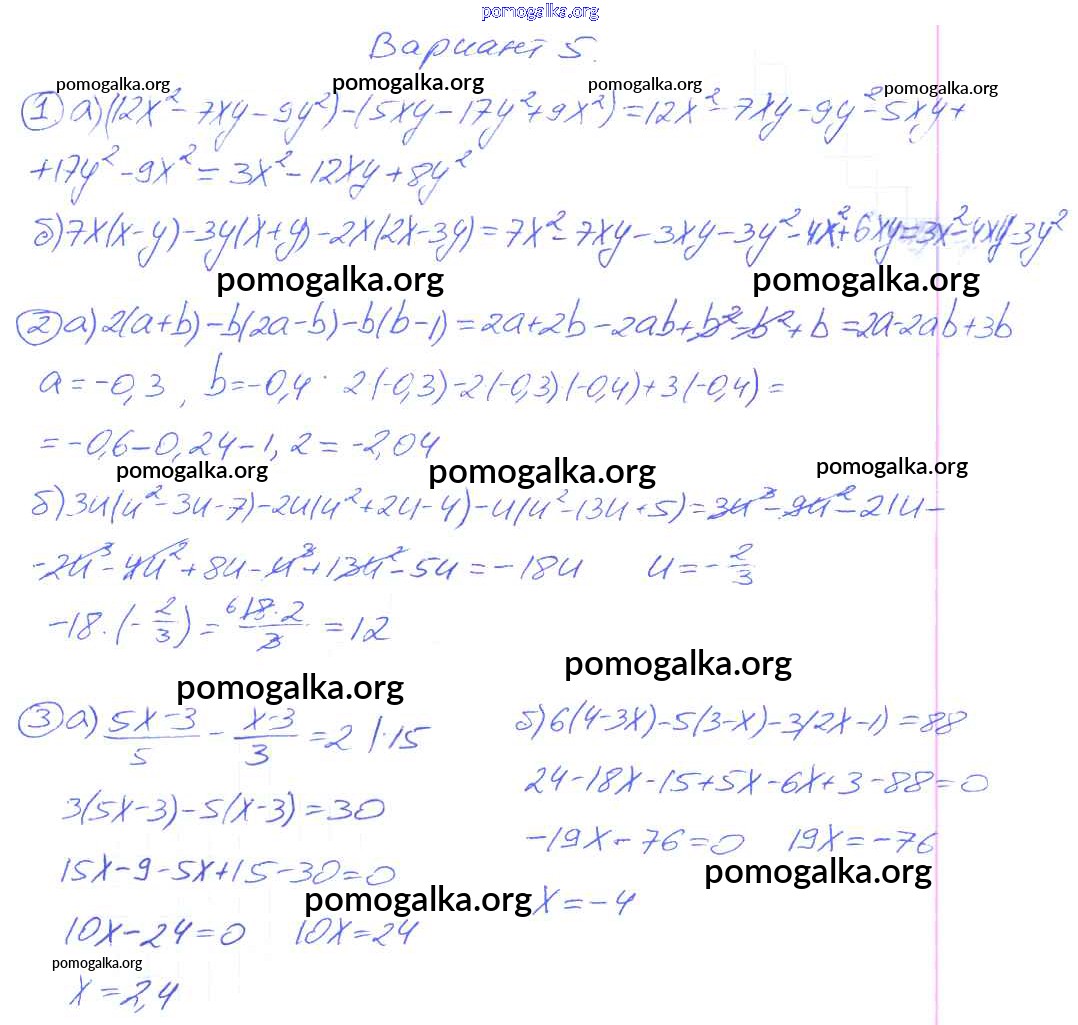 pomogalka.org
Вариант 5.
pomogalka.org pomogalka.org pomogalka.org pomogalka.org
1 а) (12x² - 7xy - 9y²) - (5xy - 17y² + 9x²) = 12x² - 7xy - 9y² - 5xy +
+ 17y² - 9x² = 3x² - 12xy + 8y²
б) 7x(x - y) - 3y(x + y) - 2x(2x - 3y) = 7x² - 7xy - 3xy - 3y² - 4x² + 6xy = 3x² - 4xy - 3y²
pomogalka.org pomogalka.org
2 а) 2(a + b) - b(2a - b) - b(b - 1) = 2a + 2b - 2ab + b² - b² + b = 2a - 2ab + 3b
a = -0,3, b = -0,4. 2(-0,3) - 2(-0,3)(-0,4) + 3(-0,4) =
= -0,6 - 0,24 - 1,2 = -2,04
pomogalka.org pomogalka.org pomogalka.org
б) 3u(u² - 3u - 7) - 2u(u² + 2u - 4) - u(u² - 13u + 5) = 3u³ - 9u² - 21u -
- 2u³ - 4u² + 8u - u³ + 13u² - 5u = -18u u = -2/3
-18 · (-2/3) = 6 18·2/3 = 12
pomogalka.org
pomogalka.org
3 а) (5x-3)/5 - (x-3)/3 = 2 |·15
3(5x - 3) - 5(x - 3) = 30
15x - 9 - 5x + 15 - 30 = 0
pomogalka.org
10x - 24 = 0 10x = 24
pomogalka.org
x = 2,4
б) 6(4 - 3x) - 5(3 - x) - 3(2x - 1) = 88
24 - 18x - 15 + 5x - 6x + 3 - 88 = 0
-19x - 76 = 0 19x = -76
pomogalka.org
x = -4